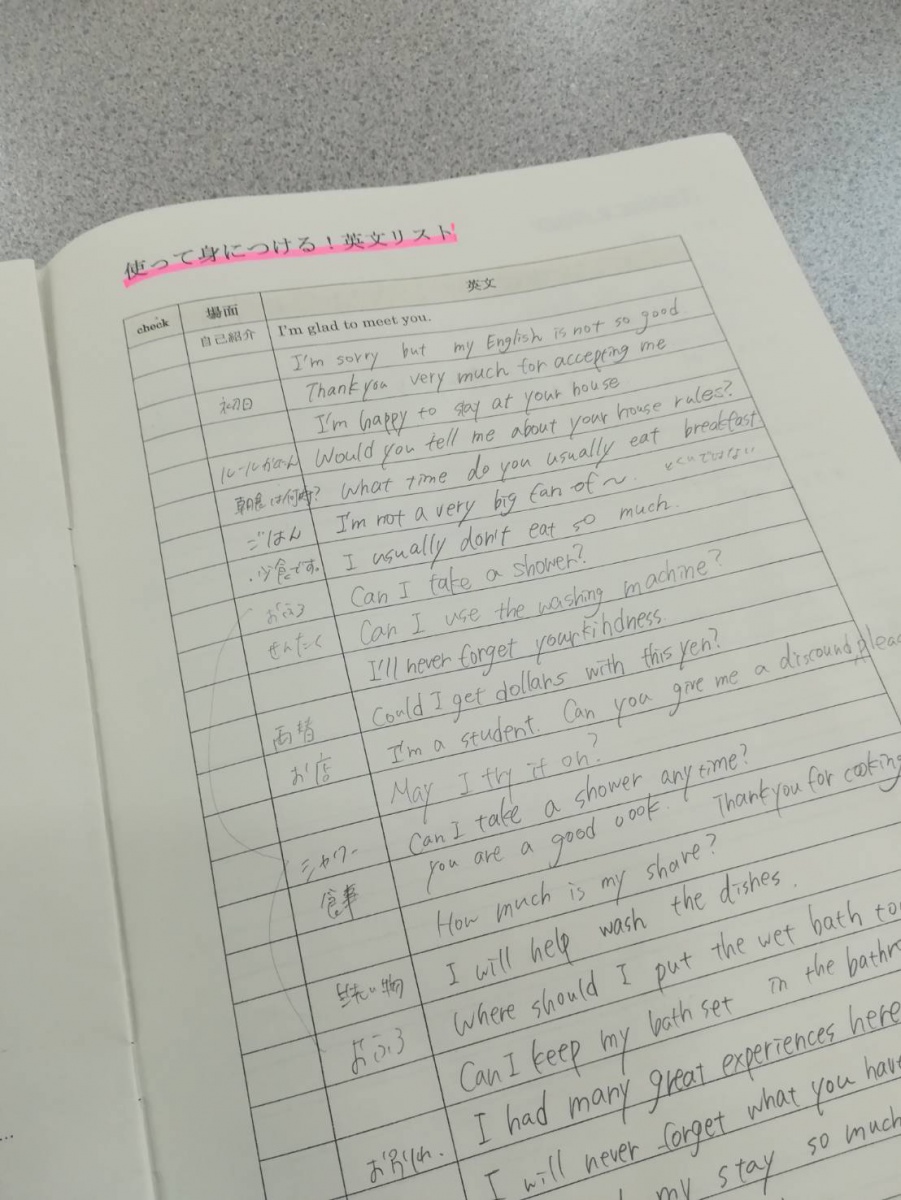 使って身につける！英文リスト
check 場面 英文
自己紹介 I'm glad to meet you.
I'm sorry but my English is not so good
初日 Thank you very much for accepting me
I'm happy to stay at your house
Would you tell me about your house rules?
朝食は何時? What time do you usually eat breakfast
ごはん I'm not a very big fan of ~.
少食です. I usually don't eat so much.
おふろ Can I take a shower?
せんたく Can I use the washing machine?
I'll never forget your kindness.
両替 Could I get dollars with this yen?
お店 I'm a student. Can you give me a discound,pleac
May I try it on?
シャワー Can I take a shower any time?
食事 you are a good cook. Thank you for cooking
How much is my share?
I will help wash the dishes.
洗い物 Where should I put the wet bath to
おふろ Can I keep my bath set in the bathr
I had many great experiences here
お別れ. I will never forget what you have
my stay so much